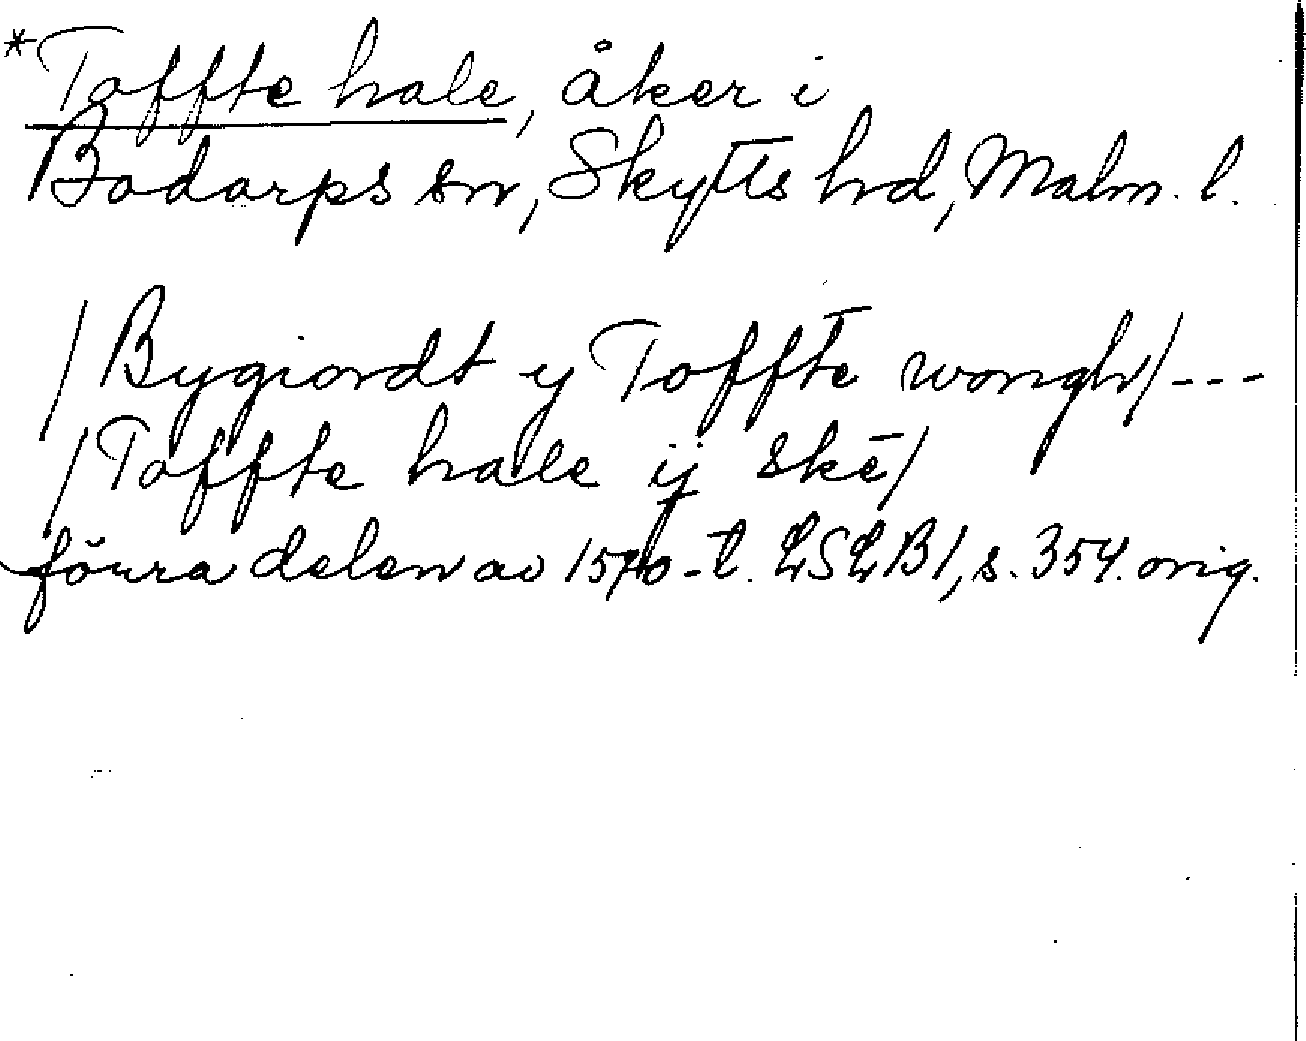 *Toffte hale, åker i
Bodarps sn, Skytts hd, Malm. l.
/Bygiordt y Toffte wongh/---
/Toffte hale ij skē/
förra delen av 1570-t. LSLB1, s. 354. orig.